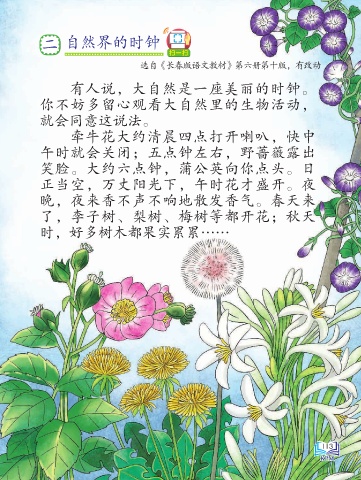 二 自然界的时钟
扫一扫
选自《长春版语文教材》第六册第十版，有改动
有人说，大自然是一座美丽的时钟。
你不妨多留心观看大自然里的生物活动，
就会同意这说法。
牵牛花大约清晨四点打开喇叭，快中
午时就会关闭；五点钟左右，野蔷薇露出
笑脸。大约六点钟，蒲公英向你点头。日
正当空，万丈阳光下，午时花才盛开。夜
晚，夜来香不声不响地散发香气。春天来
了，李子树、梨树、梅树等都开花；秋天
时，好多树木都果实累累……
113